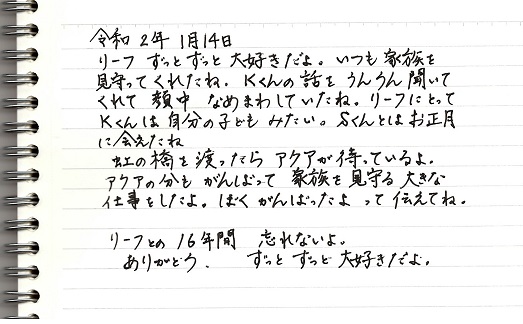 令和2年1月14日
リーフ ずっとずっと 大好きだよ。いつも 家族を
見守ってくれたね。Kくんの話を うんうん 聞いて
くれて 頬中 なめまわしていたね。リーフにとって
Kくんは 自分の子ども みたい。Sくんとは お正月
に会えたね
虹の橋を 渡ったら アクアが 待っているよ。
アクアの分も がんばって 家族を 見守る 大きな
仕事をしたよ。ぼく がんばったよ って 伝えてね。
リーフとの 16年間 忘れないよ。
ありがとう、 ずっと ずっと 大好きだよ。